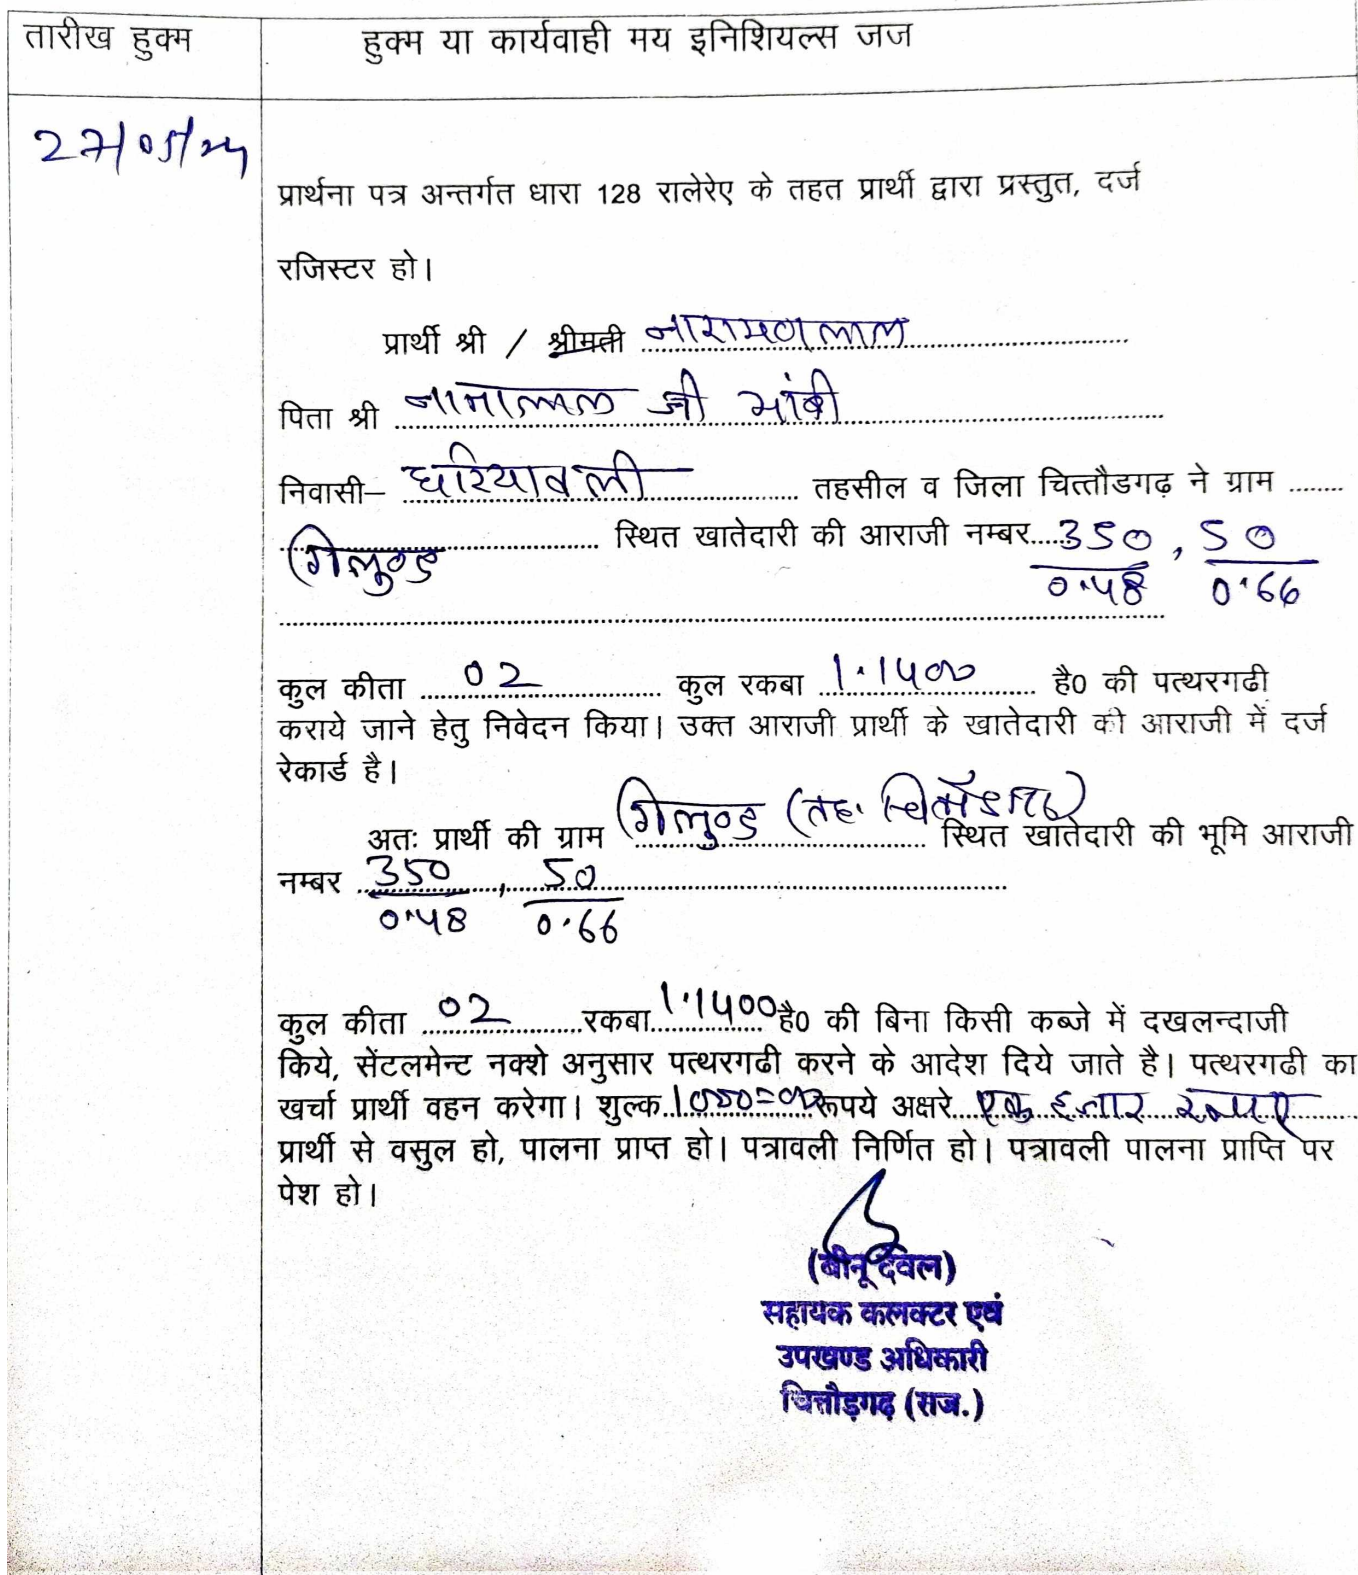 तारीख हुक्म
हुक्म या कार्यवाही मय इनिशियल्स जज
27/05/24
प्रार्थना पत्र अन्तर्गत धारा 128 रालेरेए के तहत प्रार्थी द्वारा प्रस्तुत, दर्ज
रजिस्टर हो।
प्रार्थी श्री / श्रीमती नारायणलाल
पिता श्री नानालाल जी भांबी
निवासी– घरियावली तहसील व जिला चित्तौडगढ़ ने ग्राम
गिलुण्ड स्थित खातेदारी की आराजी नम्बर 350, 50
0.48 0.66
कुल कीता 02 कुल रकबा 1.1400 है0 की पत्थरगढी
कराये जाने हेतु निवेदन किया। उक्त आराजी प्रार्थी के खातेदारी की आराजी में दर्ज
रेकार्ड है।
अतः प्रार्थी की ग्राम गिलुण्ड (तह. चित्तौडगढ) स्थित खातेदारी की भूमि आराजी
नम्बर 350, 50
0.48 0.66
कुल कीता 02 रकबा 1.1400 है0 की बिना किसी कब्जे में दखलन्दाजी
किये, सेंटलमेन्ट नक्शे अनुसार पत्थरगढी करने के आदेश दिये जाते है। पत्थरगढी का
खर्चा प्रार्थी वहन करेगा। शुल्क 1000=00 रूपये अक्षरे एक हजार रूपए
प्रार्थी से वसुल हो, पालना प्राप्त हो। पत्रावली निर्णित हो। पत्रावली पालना प्राप्ति पर
पेश हो।
(बीनू देवल)
सहायक कलक्टर एवं
उपखण्ड अधिकारी
चित्तौड़गढ़ (राज.)